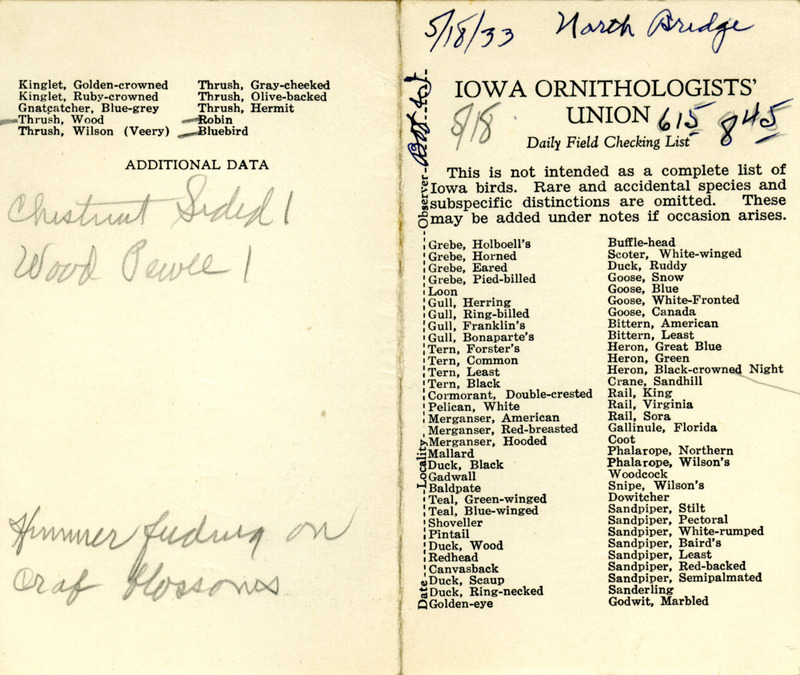 Kinglet, Golden-crowned
Kinglet, Ruby-crowned
Gnatcatcher, Blue-grey
Thrush, Wood
Thrush, Wilson (Veery)
Thrush, Gray-cheeked
Thrush, Olive-backed
Thrush, Hermit
Robin
Bluebird
ADDITIONAL DATA
Chestnut Sided 1
Wood Pewee 1
Hummer feeding on
Crab blossoms
5/18/33 North Bridge
IOWA ORNITHOLOGISTS'
UNION 615 845
5/18
Daily Field Checking List
This is not intended as a complete list of
Iowa birds. Rare and accidental species and
subspecific distinctions are omitted. These
may be added under notes if occasion arises.
Date Locality Observer
Grebe, Holboell's
Grebe, Horned
Grebe, Eared
Grebe, Pied-billed
Loon
Gull, Herring
Gull, Ring-billed
Gull, Franklin's
Gull, Bonaparte's
Tern, Forster's
Tern, Common
Tern, Least
Tern, Black
Cormorant, Double-crested
Pelican, White
Merganser, American
Merganser, Red-breasted
Merganser, Hooded
Mallard
Duck, Black
Gadwall
Baldpate
Teal, Green-winged
Teal, Blue-winged
Shoveller
Pintail
Duck, Wood
Redhead
Canvasback
Duck, Scaup
Duck, Ring-necked
Golden-eye
Buffle-head
Scoter, White-winged
Duck, Ruddy
Goose, Snow
Goose, Blue
Goose, White-Fronted
Goose, Canada
Bittern, American
Bittern, Least
Heron, Great Blue
Heron, Green
Heron, Black-crowned Night
Crane, Sandhill
Rail, King
Rail, Virginia
Rail, Sora
Gallinule, Florida
Coot
Phalarope, Northern
Phalarope, Wilson's
Woodcock
Snipe, Wilson's
Dowitcher
Sandpiper, Stilt
Sandpiper, Pectoral
Sandpiper, White-rumped
Sandpiper, Baird's
Sandpiper, Least
Sandpiper, Red-backed
Sandpiper, Semipalmated
Sanderling
Godwit, Marbled